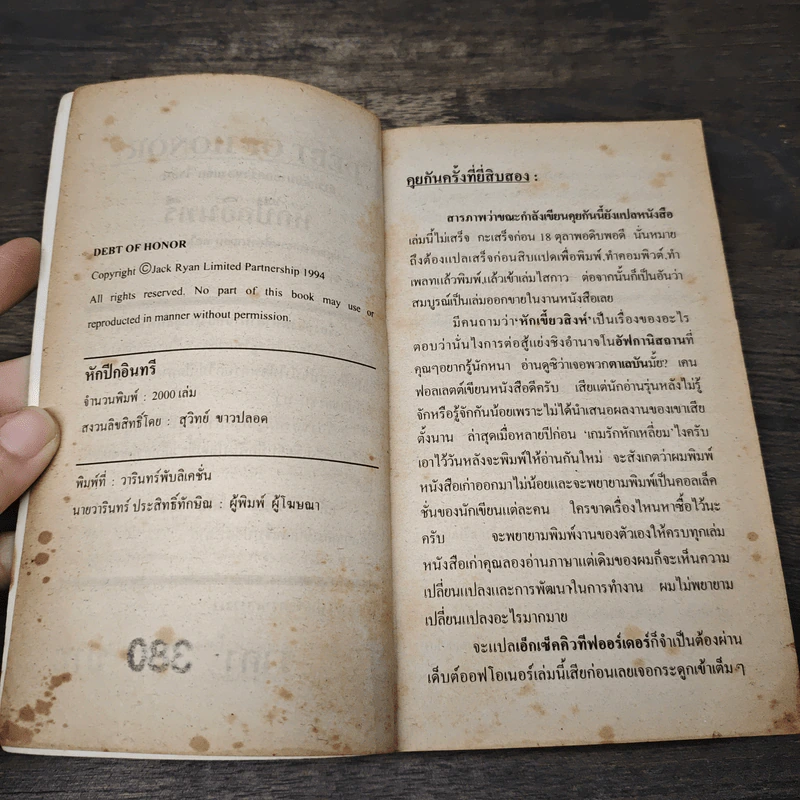 DEBT OF HONOR
Copyright ©Jack Ryan Limited Partnership 1994
All rights reserved. No part of this book may use or
reproduced in manner without permission.
หักปีกอินทรี
จำนวนพิมพ์ : 2000 เล่ม
สงวนลิขสิทธิ์โดย : สุวิทย์ ขาวปลอด
พิมพ์ที่ : วารินทร์พับลิเคชั่น
นายวารินทร์ ประสิทธิ์ทักษิณ : ผู้พิมพ์ ผู้โฆษณา
380
คุยกันครั้งที่ยี่สิบสอง :
สารภาพว่าขณะกำลังเขียนคุยกันนี้ยังแปลหนังสือ
เล่มนี้ไม่เสร็จ กะเสร็จก่อน 18 ตุลาพอดิบพอดี นั่นหมาย
ถึงต้องแปลเสร็จก่อนสิบแปดเพื่อพิมพ์,ทำคอมพิวต์,ทำ
เพลทแล้วพิมพ์,แล้วเข้าเล่มไสกาว ต่อจากนั้นก็เป็นอันว่า
สมบูรณ์เป็นเล่มออกขายในงานหนังสือเลย
มีคนถามว่า‘หักเขี้ยวสิงห์’เป็นเรื่องของอะไร
ตอบว่านั่นไงการต่อสู้แย่งชิงอำนาจในอัฟกานิสถานที่
คุณๆอยากรู้นักหนา อ่านดูซิว่าเจอพวกตาเลบันมั้ย? เคน
ฟอลเลตต์เขียนหนังสือดีครับ เสียแต่นักอ่านรุ่นหลังไม่รู้
จักหรือรู้จักกันน้อยเพราะไม่ได้นำเสนอผลงานของเขาเสีย
ตั้งนาน ล่าสุดเมื่อหลายปีก่อน ‘เกมรักหักเหลี่ยม’ไงครับ
เอาไว้วันหลังจะพิมพ์ให้อ่านกันใหม่ จะสังเกตว่าผมพิมพ์
หนังสือเก่าออกมาไม่น้อยและจะพยายามพิมพ์เป็นคอลเล็ค
ชั่นของนักเขียนแต่ละคน ใครขาดเรื่องไหนหาซื้อไว้นะ
ครับ จะพยายามพิมพ์งานของตัวเองให้ครบทุกเล่ม
หนังสือเก่าคุณลองอ่านภาษาแต่เดิมของผมก็จะเห็นความ
เปลี่ยนแปลงและการพัฒนาในการทำงาน ผมไม่พยายาม
เปลี่ยนแปลงอะไรมากมาย
จะแปลเอ็กเซ็คคิวทีฟออร์เดอร์ก็จำเป็นต้องผ่าน
เด็บต์ออฟโอเนอร์เล่มนี้เสียก่อนเลยเจอกระดูกเข้าเต็ม ๆ